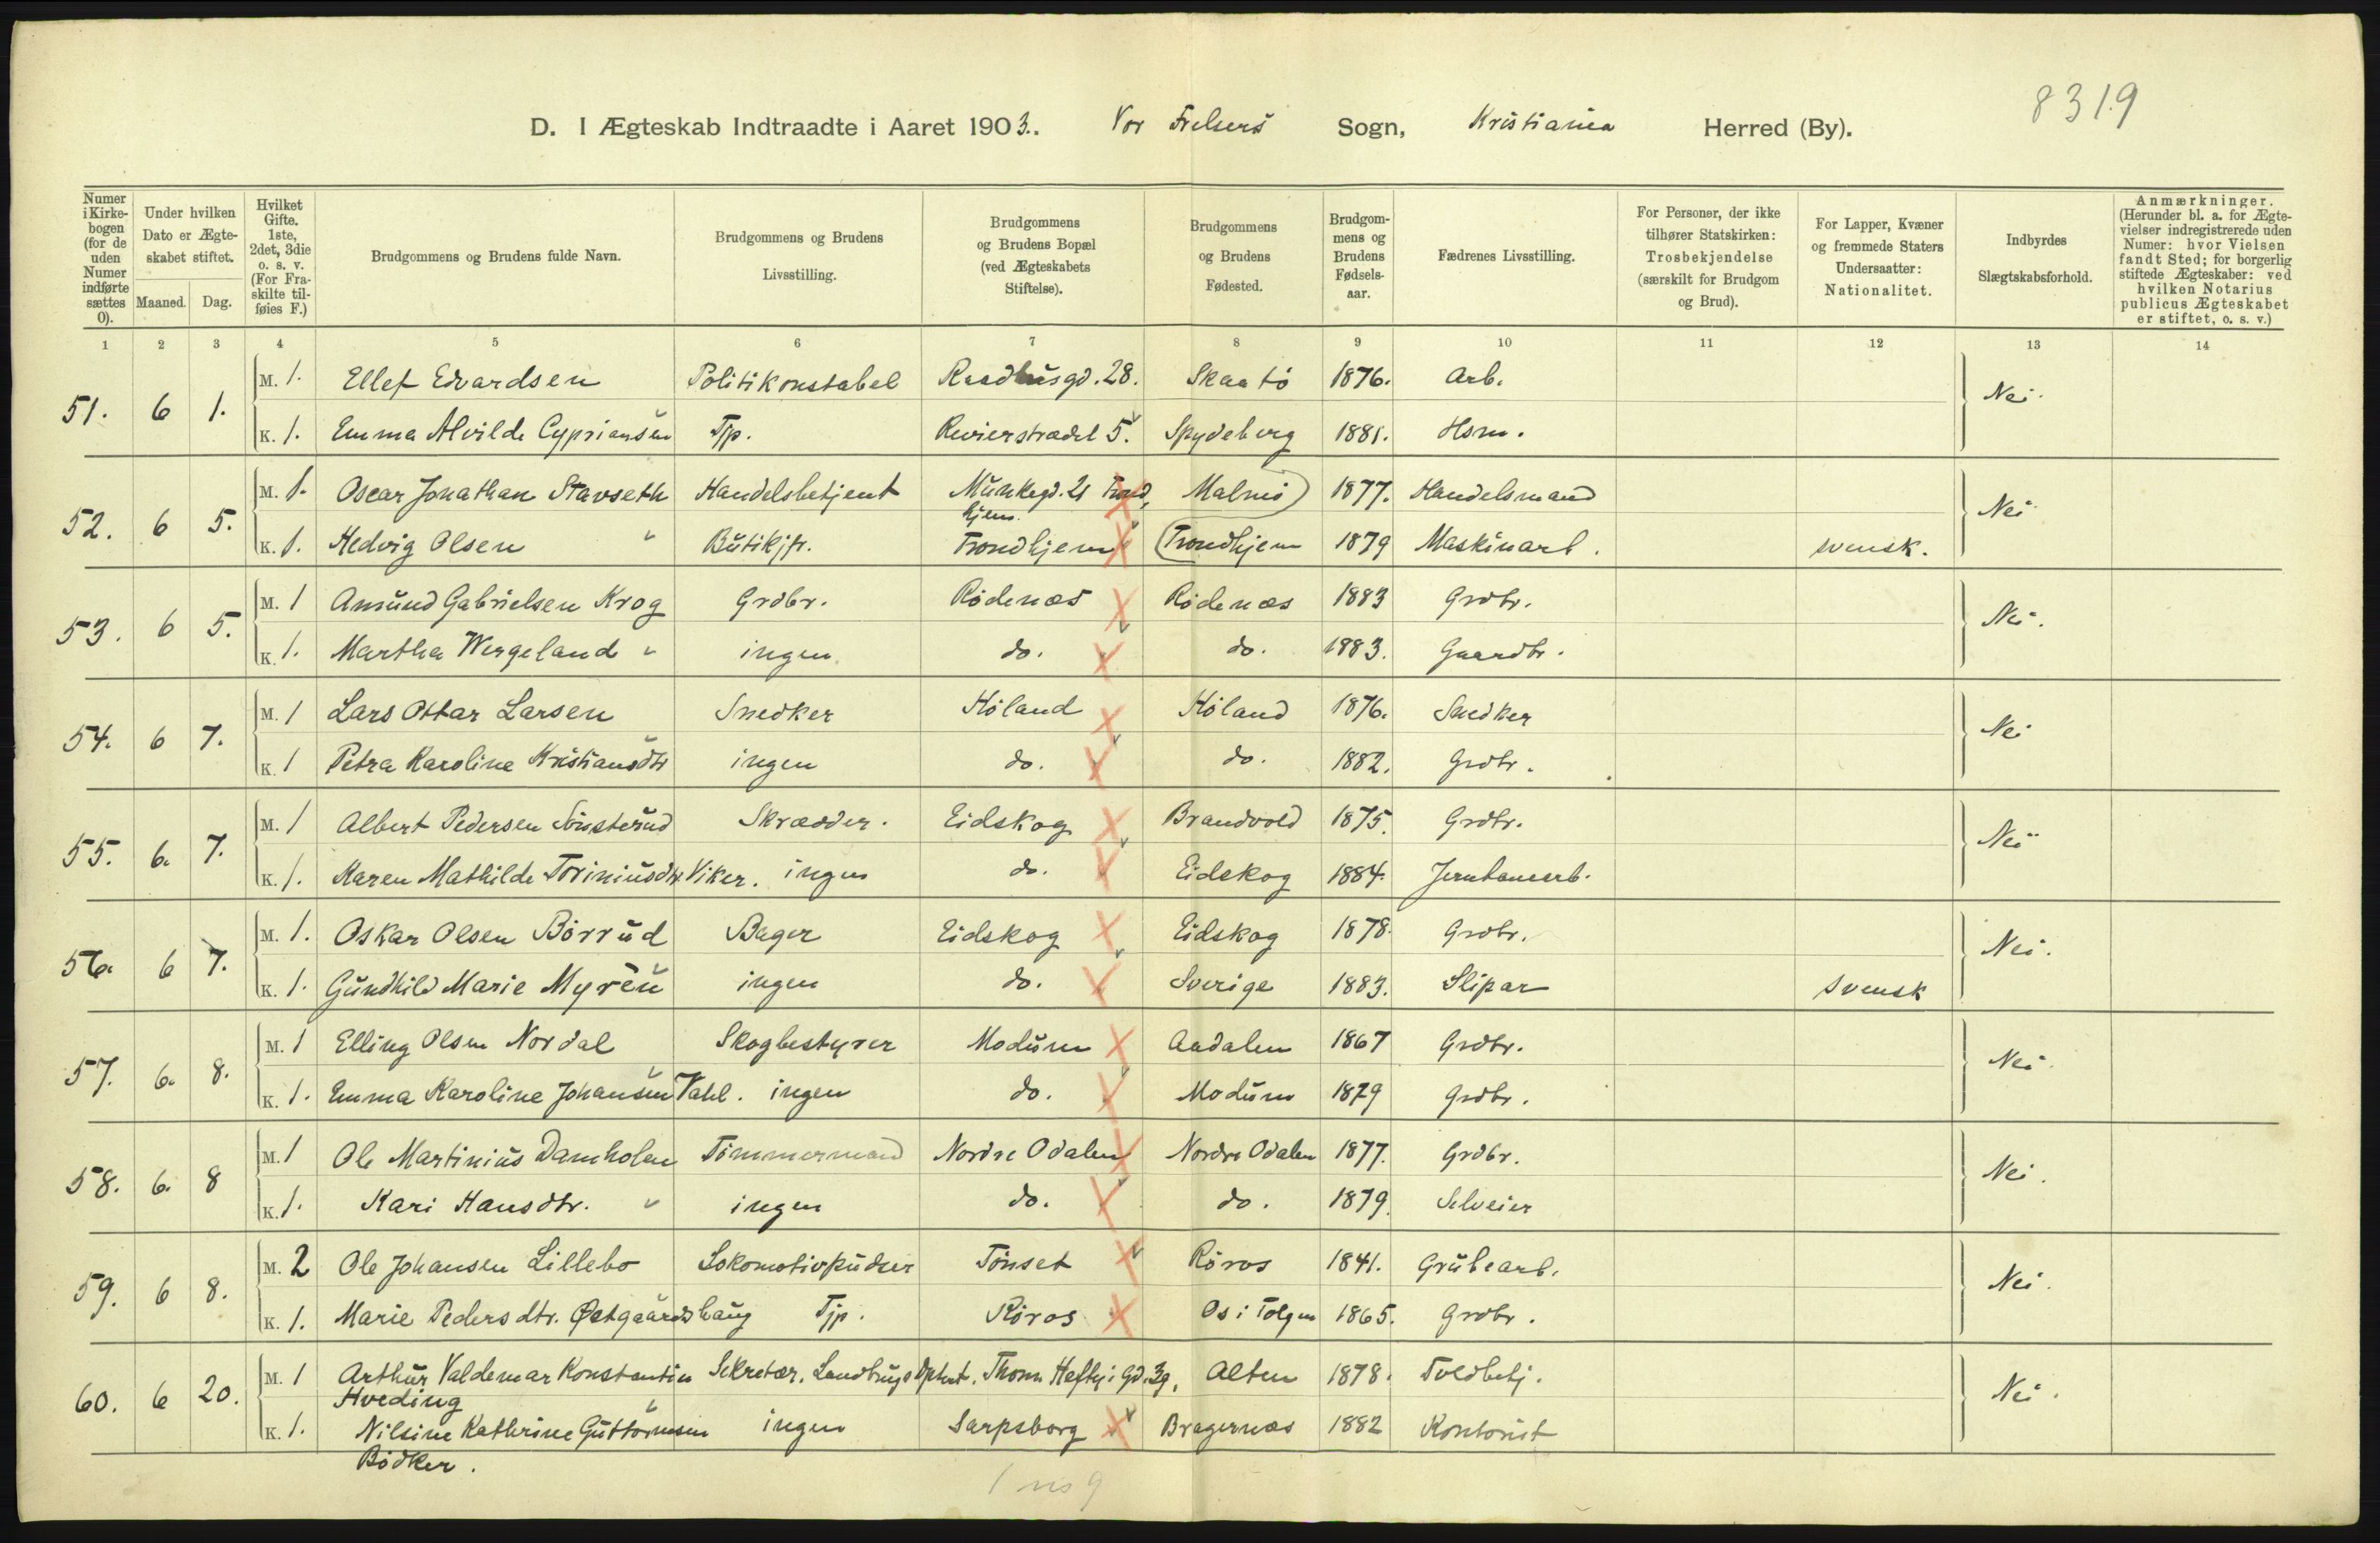 8319
D. I Ægteskab Indtraadte i Aaret 1903. Vor Frelsers Sogn, Kristiania Herred (By).
Numer i Kirkebogen (for de uden Numer indførte sættes 0).
Under hvilken Dato er Ægteskabet stiftet.
Maaned. Dag.
Hvilket Gifte. 1ste, 2det, 3die o. s. v. (For Fraskilte tilføies F.)
Brudgommens og Brudens fulde Navn.
Brudgommens og Brudens Livsstilling.
Brudgommens og Brudens Bopæl (ved Ægteskabets Stiftelse).
Brudgommens og Brudens Fødested.
Brudgommens og Brudens Fødselsaar.
Fædrenes Livsstilling.
For Personer, der ikke tilhører Statskirken: Trosbekjendelse (særskilt for Brudgom og Brud).
For Lapper, Kvæner og fremmede Staters Undersaatter: Nationalitet.
Indbyrdes Slægtskabsforhold.
Anmærkninger. (Herunder bl. a. for Ægtevielser indregistrerede uden Numer: hvor Vielsen fandt Sted; for borgerlig stiftede Ægteskaber: ved hvilken Notarius publicus Ægteskabet er stiftet, o. s. v.)
1 2 3 4 5 6 7 8 9 10 11 12 13 14
51. 6 1. M. 1. Ellef Edvardsen Politikonstabel Raadhusgd. 28. Skaatö 1876. Arb. Nei.
K. 1. Emma Alvilde Cypriansen Tjp. Revierstrædet 5. Spydeberg 1881. Hsm.
52. 6 5. M. 1. Oscar Jonathan Stavseth Handelsbetjent Munkegd. 21 Trondhjem. Malmö 1877. Handelsmand Nei
K. 1. Hedvig Olsen Butikjfr. Trondhjem Trondhjem 1879 Maskinarb. svensk.
53. 6 5. M. 1 Amund Gabrielsen Krog Grdbr. Rødenæs Rødenæs 1883 Grdbr. Nei.
K. 1. Martha Wergeland ingen do. do. 1883. Gaardbr.
54. 6 7. M. 1 Lars Ottar Larsen Snedker Höland Höland 1876. Snedker Nei
K. 1 Petra Karoline Kristiansdtr ingen do. do. 1882. Grdbr.
55. 6. 7. M. 1 Albert Pedersen Skrædder. Eidskog Brandvold 1875. Grdbr. Nei
K. 1. Karen Mathilde Toriniusdtr. Viker. ingen do. Eidskog 1884. Jernbanearb.
56. 6 7. M. 1. Oskar Olsen Börrud Bager Eidskog Eidskog 1878. Grdbr. Nei.
K. 1. Gundhild Marie Myren ingen do. Sverige 1883. Slipar svensk
57. 6. 8. M. 1 Elling Olsen Nordal Skogbestyrer Modum Aadalen 1867 Grdbr. Nei.
K. 1. Emma Karoline Johansen Vahl. ingen do. Modum 1879 Grdbr.
58. 6. 8 M. 1 Ole Martinius Damholen Tömmermand Nordre Odalen Nordre Odalen 1877. Grdbr. Nei.
K. 1. Kari Hansdtr. ingen do. do. 1879. Selveier
59. 6 8. M. 2 Ole Johansen Lillebo Lokomotivpudser Tönset Röros 1841. Grubearb. Nei.
K. 1. Marie Pedersdtr. Østgaardshaug Tjp. Röros Os i Tolgen 1865. Grdbr.
60. 6 20. M. 1 Arthur Valdemar Konstantin Sekretær. Landbrugsdptmt. Thom. Heftyi Gd. 39. Alten 1878. Toldbetj. Nei.
Hveding
K. 1. Nilsine Kathrine Guttormsen ingen Sarpsborg Bragernæs 1882 Kontorist
Bödker.